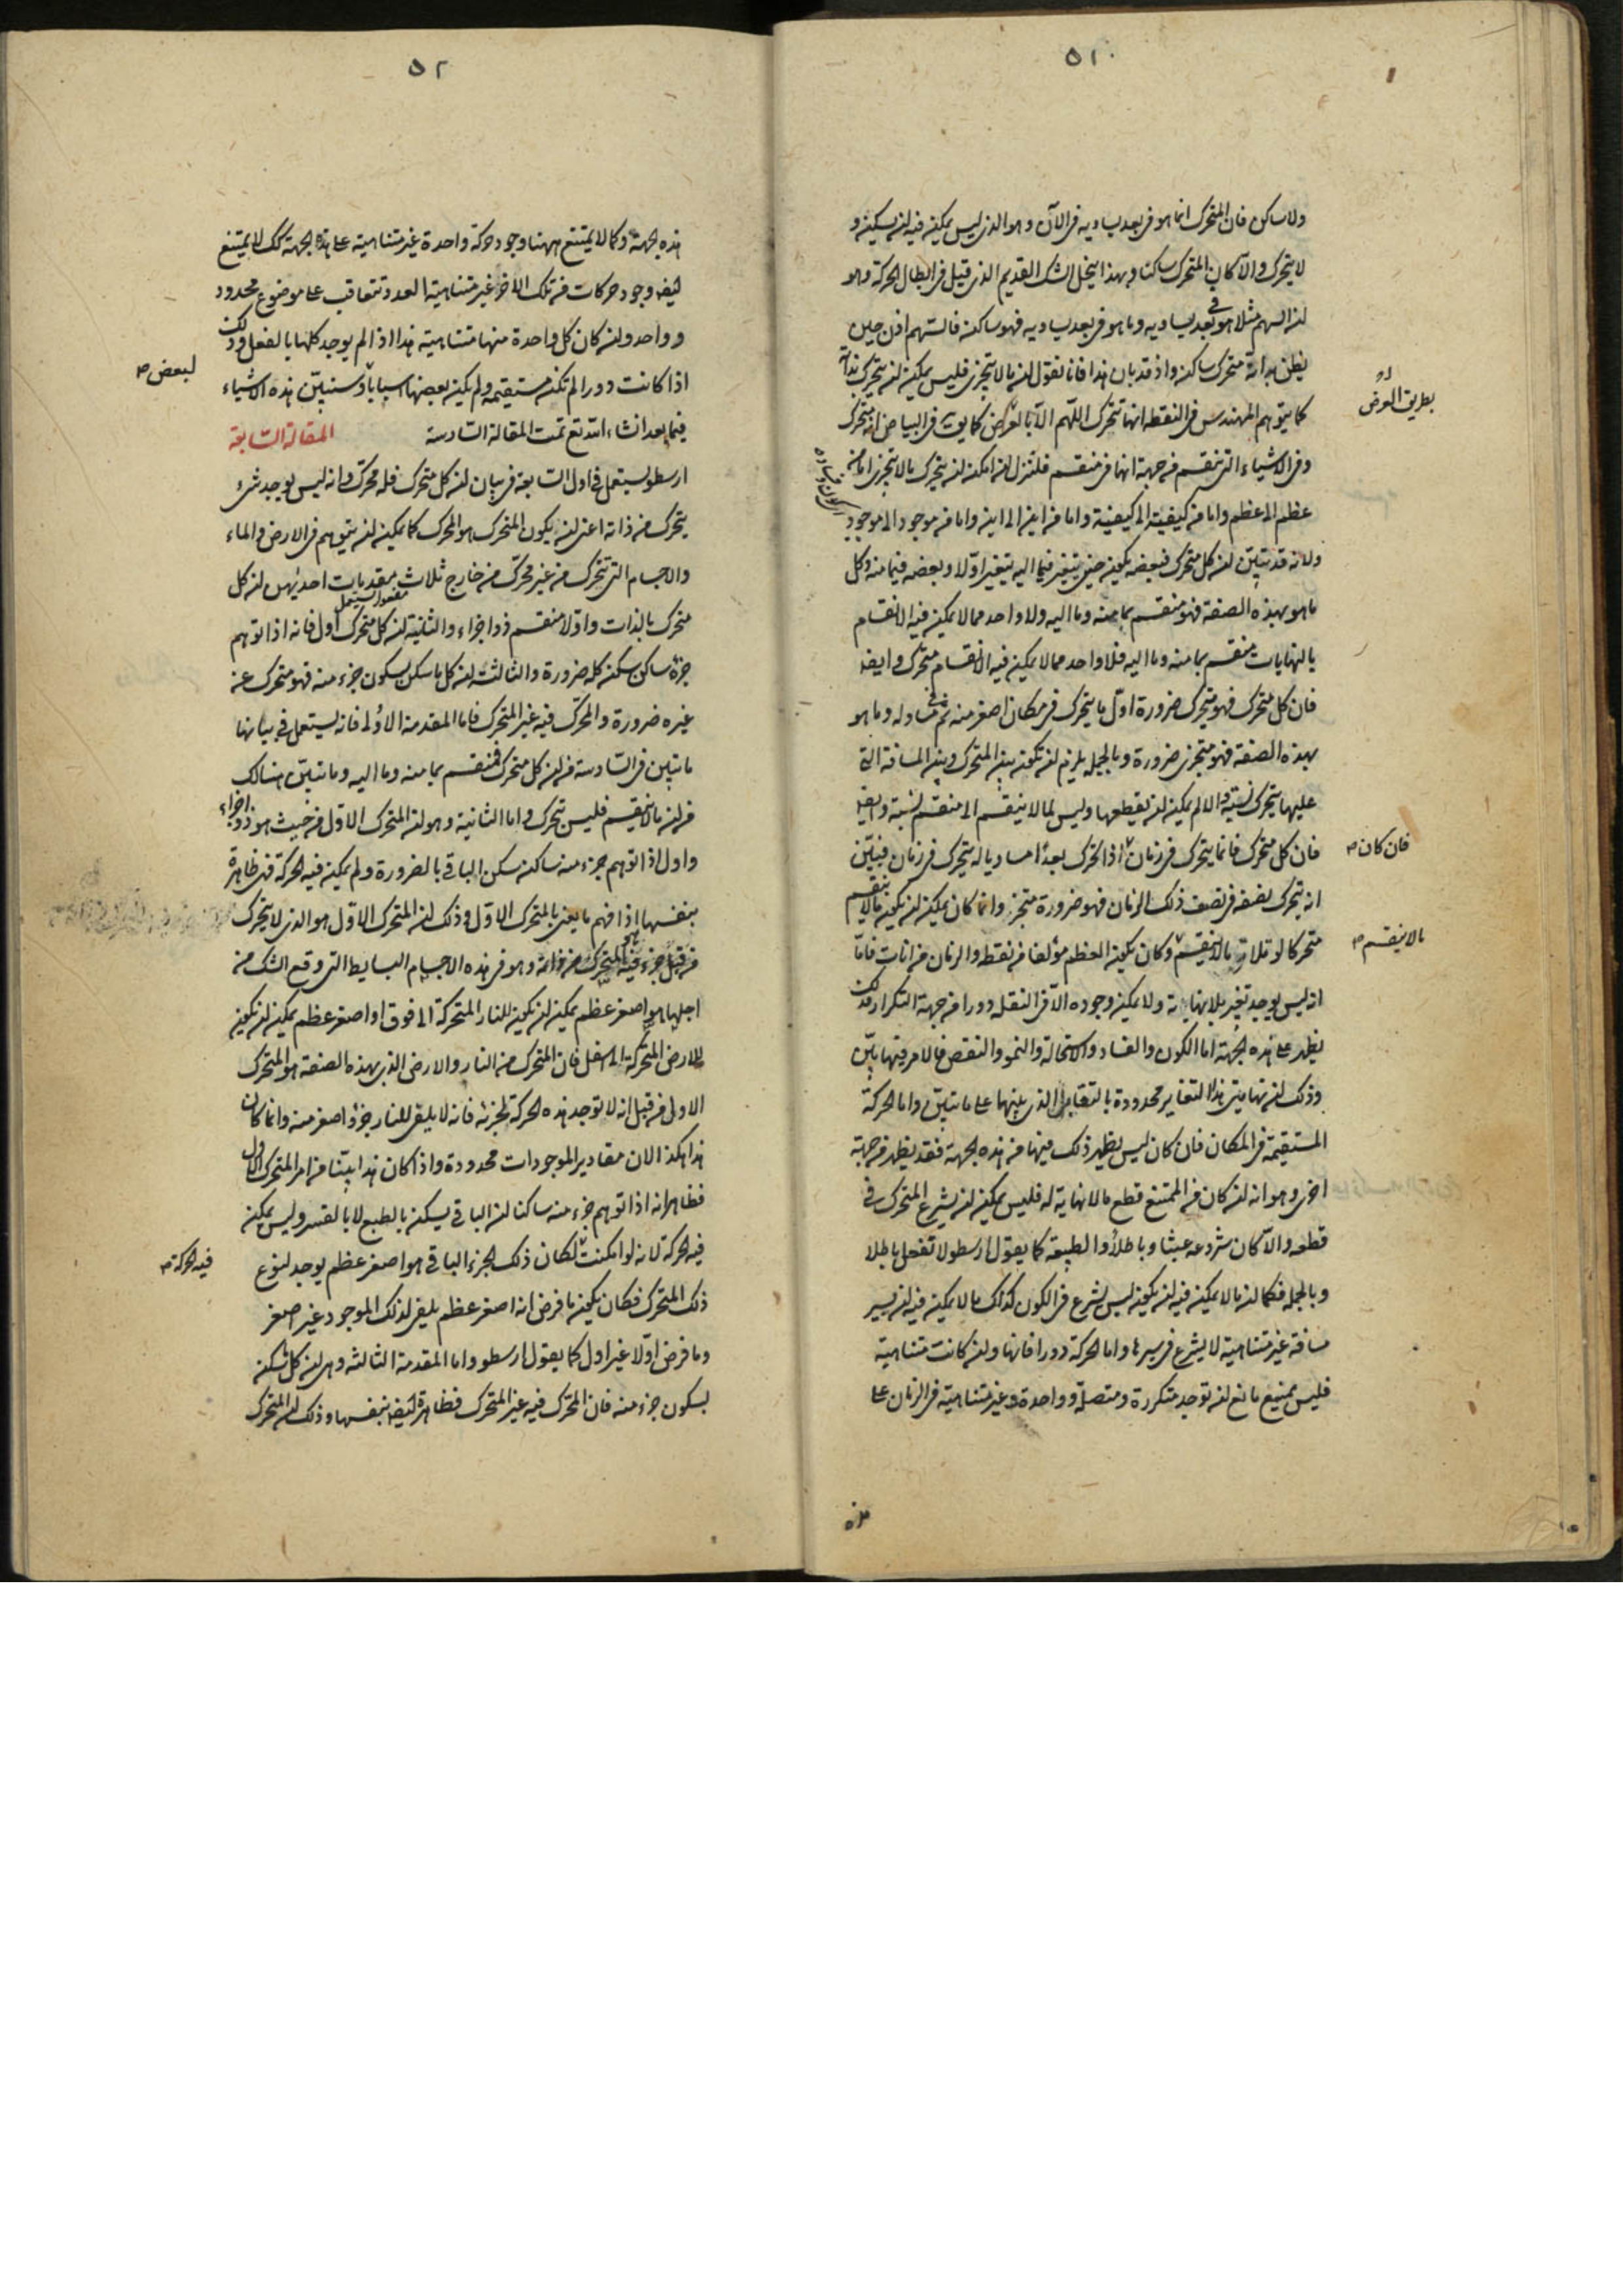 ٥١
ولا ساكن فان المتحرك انما هو فى بعد يساويه فى الآن وهو الذى ليس يمكن فيه لن يسكن و
لا يتحرك والا كان المتحرك ساكنا وبهذا ينحل الشك القديم الذى قيل فى ابطال الحركة وهو
لن السهم مثلا هو فى بعد يساويه وما هو فى بعد يساويه فهو ساكن فالسهم اذن حين
يظن به انه متحرك ساكن واذ قد بان هذا فانا نقول لن ما لا يتجزى فليس يمكن لن يتحرك بذاته
كما يتوهم المهندس فى النقطه انها تتحرك اللهم الا بالعرض كما يق فى البياض انه متحرك
بطريق العرض
وفى الاشياء التى تنقسم من جهة انها فى منقسم فلننزل لن امكن لن يتحرك ما لا يتجزى اما من
عظم الى عظم واما من كيفية الى كيفية واما من اين الى اين واما من موجود الى موجود
ولانه قد تبين لن كل متحرك فبعضه يكون حين يتغير فيما اليه يتغير اولا وبعضه فيما منه وكل
ما هو بهذه الصفة فهو منقسم بما منه وما اليه ولا واحد مما لا يمكن فيه الانقسام
بالنهايات منقسم بما منه وما اليه فلا واحد مما لا يمكن فيه الانقسام متحرك وايضا
فان كل متحرك فهو يتحرك ضرورة اول ما يتحرك فى مكان اصغر منه ثم فى مساو له وما هو
بهذه الصفة فهو متجزى ضرورة وبالجملة يلزم لن تكون بين المتحرك وبين المسافة التى
عليها يتحرك نسبة والا لم يمكن لن يقطعها وليس لما لا ينقسم الى منقسم نسبة وايضا
فان كل متحرك فانما يتحرك فى زمان اذا تحرك بعدا مساويا له يتحرك فى زمان فبين
فان كان
انه يتحرك نصفه فى نصف ذلك الزمان فهو ضرورة متجز وانما كان يمكن لن يكون ما لا ينقسم
متحركا لو تلاقى ما لا ينقسم وكان يكون العظم مؤلفا من نقط والزمان من انات فاما
ما لا ينقسم
انه ليس يوجد تغير بلا نهاية ولا يمكن وجوده الا فى النقلة دورا من جهة التكرار فذلك
يظهر على هذه الجهة اما الكون والفساد والاستحالة والنمو والنقص فالامر فيها بين
وذلك لن نهايتى هذا التغاير محدودة بالتقابل الذى بينها على ما تبين واما الحركة
المستقيمة فى المكان فان كان ليس يظهر ذلك فيها من هذه الجهة فقد يظهر من جهة
اخرى وهو انه لن كان من الممتنع قطع ما لا نهاية له فليس يمكن لن يشرع المتحرك فى
قطعه والا كان شروعه عبثا وباطلا والطبيعة كما يقول ارسطو لا تفعل باطلا
وبالجملة فكما لن ما لا يمكن فيه لن يكون ليس يشرع فى الكون كذلك ما لا يمكن فيه لن يسير
مسافة غير متناهية لا يشرع فى سيرها واما الحركة دورا فانها ولن كانت متناهية
فليس يمنع مانع لن توجد متكررة ومتصلة وواحدة وغير متناهية فى الزمان على
هذه
٥٢
هذه الجهة وكما لا يمتنع ههنا وجود حركة واحدة غير متناهية على هذه الجهة كك لا يمتنع
ايضا وجود حركات من تلك الاخر غير متناهية العدد تتعاقب على موضوع محدود
وواحد ولن كان كل واحدة منها متناهية هذا اذا لم يوجد كلها بالفعل وذلك
اذا كانت دورا لم تكن مستقيمة ولم يكن بعضها اسبابا وسنبين هذه الاشياء
لبعض
فيما بعد انشاء الله تع تمت المقالة السادسة المقالة السابعة
ارسطو يستعمل فى اول السابعة فى بيان لن كل متحرك فله محرك وانه ليس يوجد شئ
يتحرك من ذاته اعنى لن يكون المتحرك هو المحرك كما يمكن لن يتوهم فى الارض والماء
والاجسام التى تتحرك من غير محرك من خارج ثلاث مقدمات احديهن لن كل
مفعول يستعمل
متحرك بالذات واولا منقسم ذو اجزاء والثانية لن كل متحرك اول فانه اذا توهم
جزؤه ساكن سكن كله ضرورة والثالثة لن كل ما سكن بسكون جزء منه فهو متحرك عن
غيره ضرورة والمحرك فيه غير المتحرك فاما المقدمة الاولى فانه يستعمل فى بيانها
ما تبين فى السادسة من لن كل متحرك فمنقسم بما منه وما اليه وما تبين هنالك
من لن ما لا ينقسم فليس يتحرك واما الثانية وهو لن المتحرك الاول من حيث هو ذو اجزاء
واول اذا توهم جزء منه ساكن سكن الباقى بالضرورة ولم يمكن فيه الحركة فهى ظاهرة
بنفسها اذا فهم ما يعنى بالمتحرك الاول وذلك لن المتحرك الاول هو الذى لا يتحرك
من قبل جزء فيه المتحرك من ذاته وهو فى هذه الاجسام البسايط التى وقع الشك من
اجلها هو اصغر عظم يمكن لن يكون للنار المتحركة الى فوق او اصغر عظم يمكن لن يكون
للارض المتحركة الى اسفل فان المتحرك من النار والارض الذى بهذه الصفة هو المتحرك
الاولى من قبل انه لا توجد هذه الحركة لجزئه فانه لا يلقى للنار جزؤ اصغر منه وانما كان
هذا هكذا لان مقادير الموجودات محدودة واذا كان هذا بينا من امر المتحرك الاول
فظاهر انه اذا توهم جزء منه ساكنا لن الباقى يسكن بالطبع لا بالقسر وليس يمكن
فيه الحركة لانه لو امكنت لكان ذلك الجزء الباقى هو اصغر عظم يوجد لنوع
فيه الحركة
ذلك المتحرك فكان يكون ما فرض انه اصغر عظم يلفى لذلك الموجود غير اصغر
وما فرض اولا غير اول كما يقول ارسطو واما المقدمة الثالثة وهى لن كل ما سكن
بسكون جزء منه فان المحرك فيه غير المتحرك فظاهرة ايضا بنفسها وذلك لن المتحرك